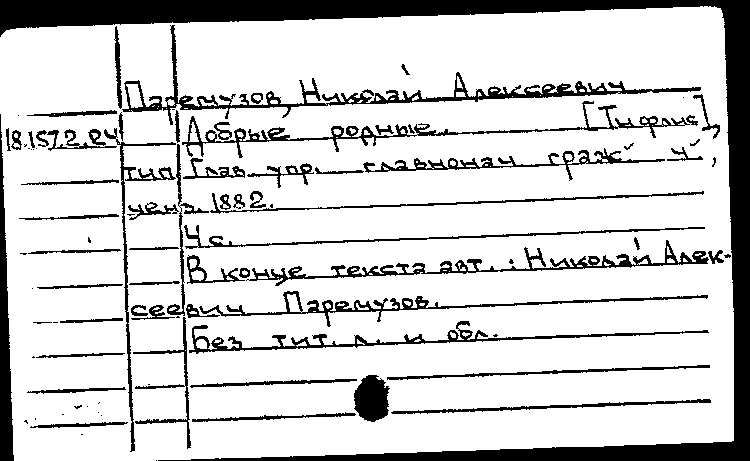 Паремузов, Николай Алексеевич
18.157.2.24 Добрые родные. [Тифлис],
тип. Глав. упр. главнонач граж. ч.,
ценз. 1882.
4 с.
В конце текста авт.: Николай Алек-
сеевич Паремузов.
Без тит. л. и обл.